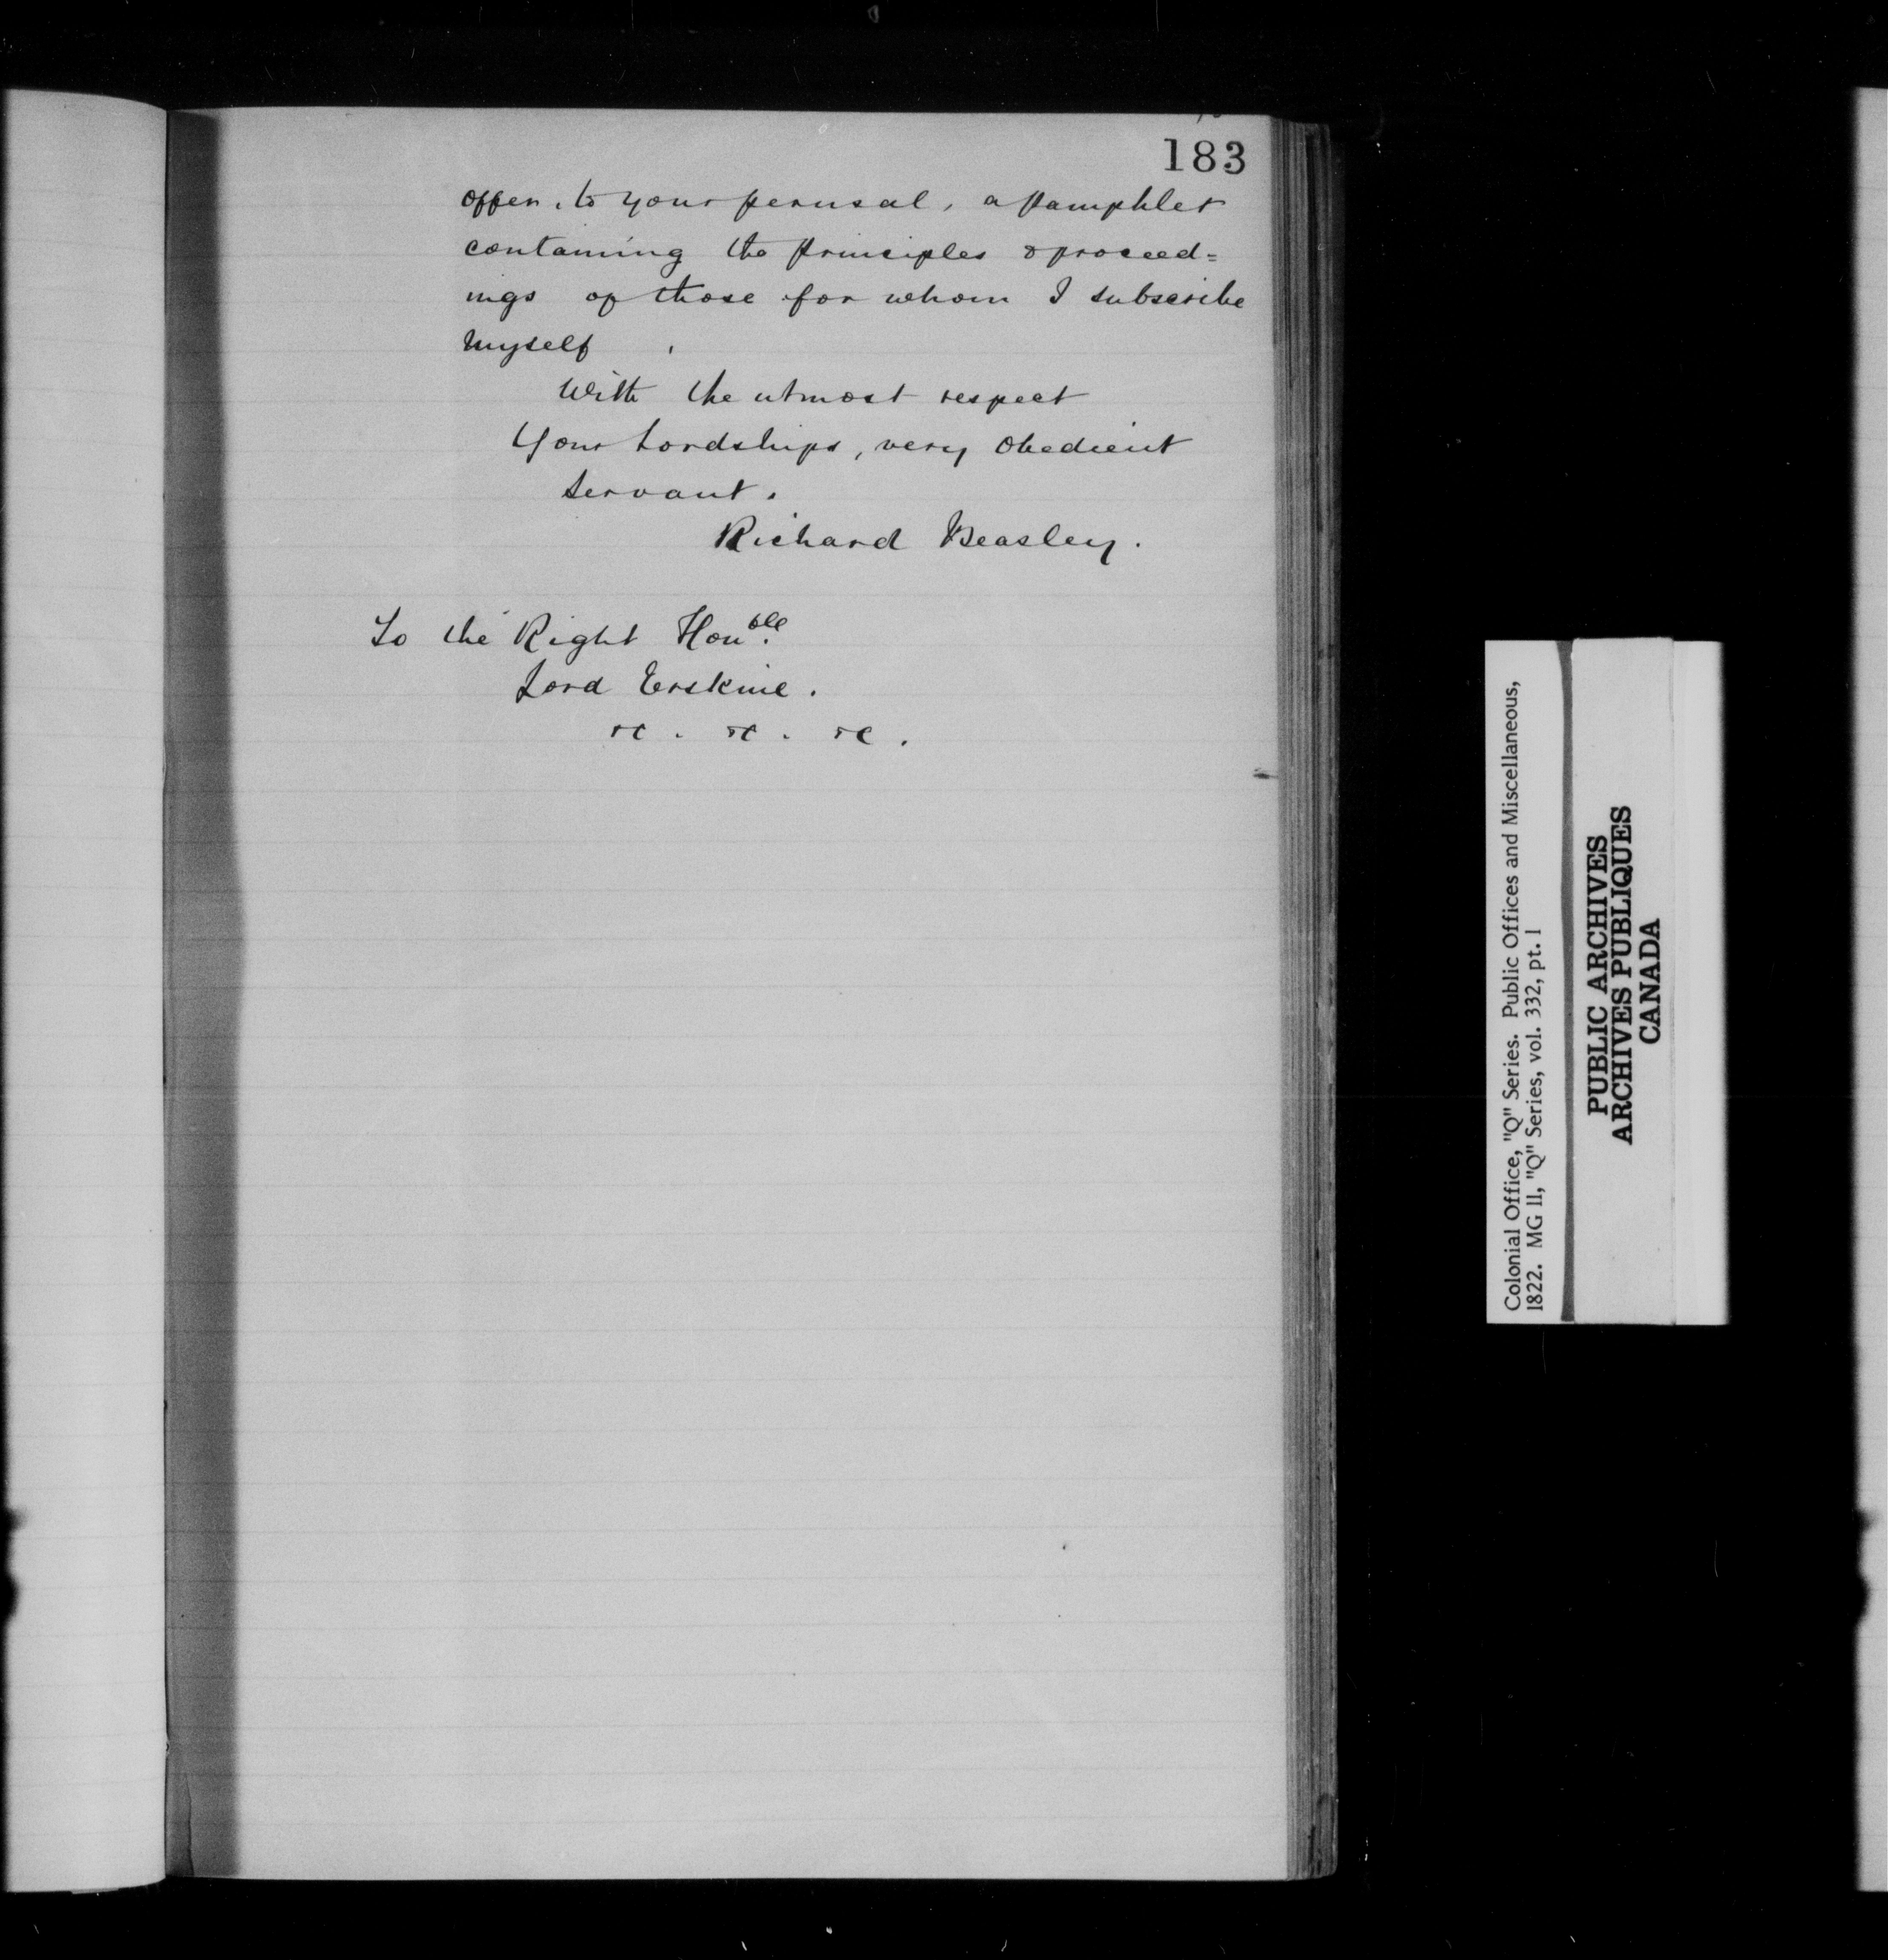 183
offer, to your perusal, a pamphlet
containing the principles & proceed=
ings of those for whom I subscribe
myself ,
With the utmost respect
Your Lordships, very obedient
servant.
Richard Beasley.
To the Right Honble.
Lord Erskine.
&c. &c. &c.
Colonial Office, "Q" Series. Public Offices and Miscellaneous,
1822. MG 11, "Q" Series, vol. 332, pt. 1
PUBLIC ARCHIVES
ARCHIVES PUBLIQUES
CANADA